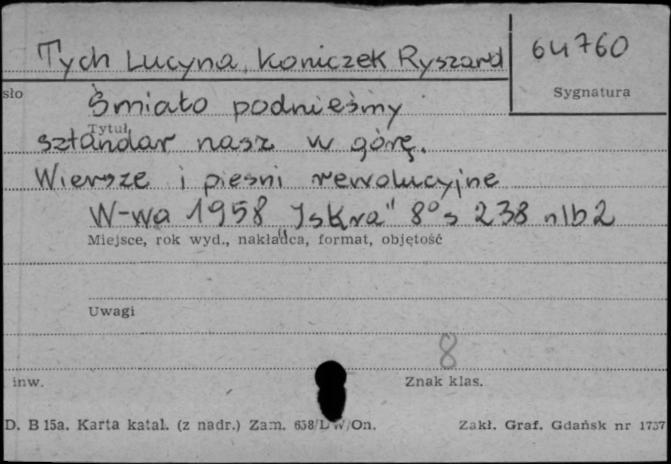 Tych Lucyna, Koniczek Ryszard
64760
sło
Sygnatura
Śmiało podnieśmy
Tytuł
sztandar nasz w górę.
Wiersze i pieśni rewolucyjne
W-wa 1958 „Iskra" 8° s 238 nlb 2
Miejsce, rok wyd., nakładca, format, objętość
Uwagi
8
inw.
Znak klas.
D. B 15a. Karta katal. (z nadr.) Zam. 658/LW/On.
Zakł. Graf. Gdańsk nr 1737